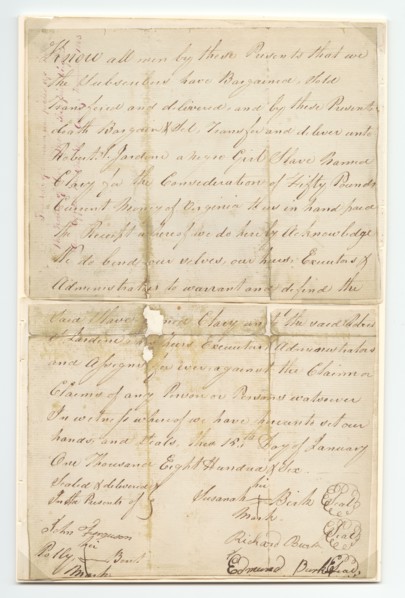 Know all men by these Presents that we
the Subscribers have Bargained, Sold
Transfered and delivered and by these Presents
doath Bargain & Sel, Transfer and deliver unto
Robert S. Jardine a negro Girl Slave Named
Clary for the Consideration of Fifty Pounds
Current Money of Virginia to us in hand paid
The Receipt whereof we do hereby Acknowledge
We do bind our selves, our heirs Executors &
Administrators to warrant and defend the
Said Slave Clary unto the said
S. Jardine heirs Executors Administrators
and Assigns against the Claim or
Claims of any Person or Persons watsoever
In witness whereof we have hereunto set our
hands, and Seals, this 15th Day of January
One Thousand Eight Hundred & Six
Sealed & delivered
In the Presents of
Susanah Birk Seal
Mark
Richard Burk Seal
Edmund Burk Seal
John Ferguson
Polly
Mark